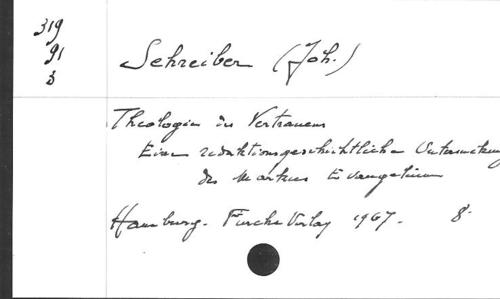 319
91
3
Schreiber (Joh.)
Theologie des Vertrauens
Eine redaktionsgeschichtliche Untersuchung
des Markus Evangelium
Hamburg. Furche Verlag 1967. 8.